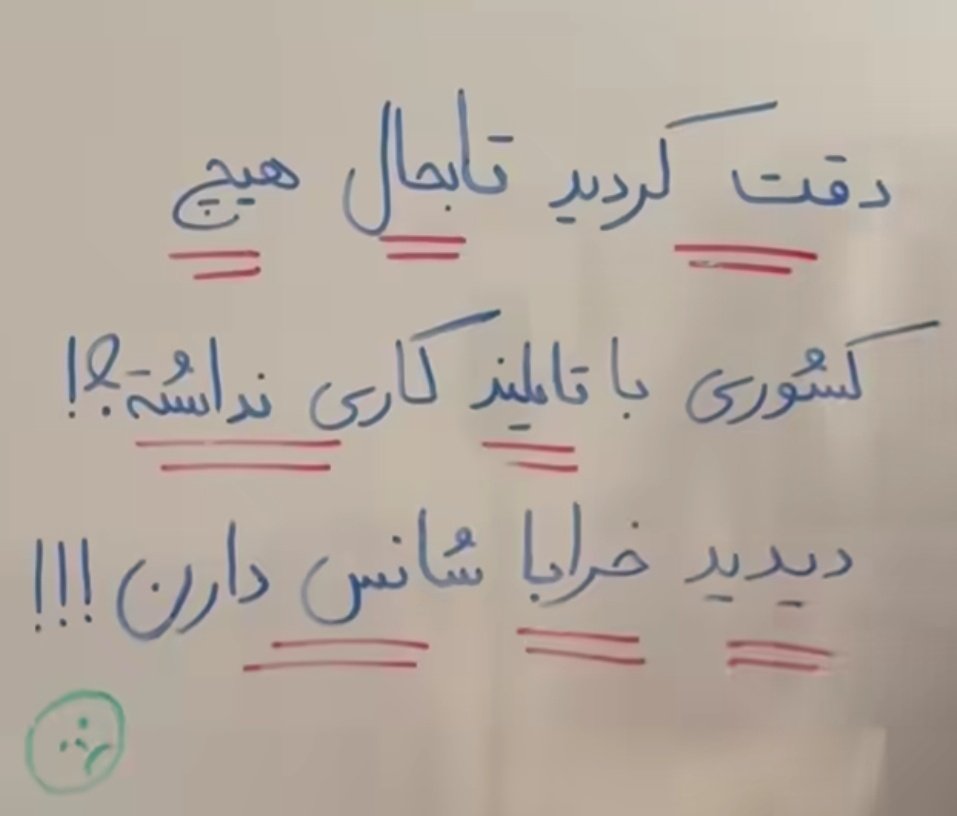 دقت کردید تابحال هیچ
کشوری با تایلند کاری نداشته؟!
دیدید خرابا شانس دارن!!!